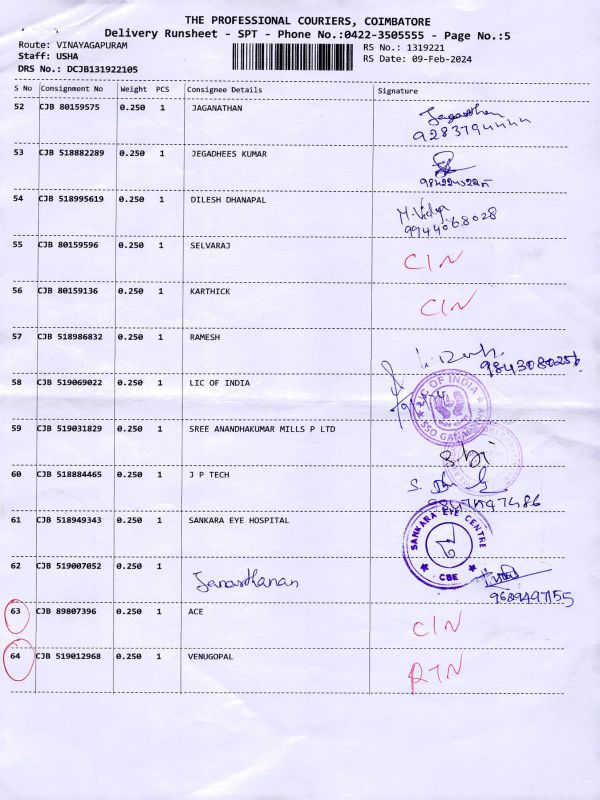 THE PROFESSIONAL COURIERS, COIMBATORE
Delivery Runsheet - SPT - Phone No.:0422-3505555 - Page No.:5
Route: VINAYAGAPURAM RS No.: 1319221
Staff: USHA RS Date: 09-Feb-2024
DRS No.: DCJB131922105
S No Consignment No Weight PCS Consignee Details Signature
52 CJB 80159575 0.250 1 JAGANATHAN Jaganathan
53 CJB 518882289 0.250 1 JEGADHEES KUMAR
54 CJB 518995619 0.250 1 DILESH DHANAPAL M. Vidya
9944068028
55 CJB 80159596 0.250 1 SELVARAJ CIN
56 CJB 80159136 0.250 1 KARTHICK CIN
57 CJB 518986832 0.250 1 RAMESH
9843080256
58 CJB 519069022 0.250 1 LIC OF INDIA LIC OF INDIA
59 CJB 519031829 0.250 1 SREE ANANDHAKUMAR MILLS P LTD
60 CJB 518884465 0.250 1 J P TECH
61 CJB 518949343 0.250 1 SANKARA EYE HOSPITAL SANKARA EYE CENTRE
CBE
62 CJB 519007052 0.250 1 Janarthanan
9689497155
63 CJB 89807396 0.250 1 ACE CIN
64 CJB 519012968 0.250 1 VENUGOPAL RTN